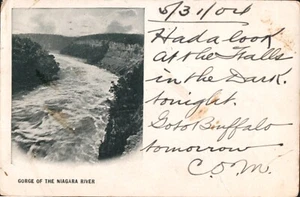 5/31/04
Had a look
at the Falls
in the Dark.
tonight.
Goto Buffalo
tomorrow
C.O.M.
GORGE OF THE NIAGARA RIVER